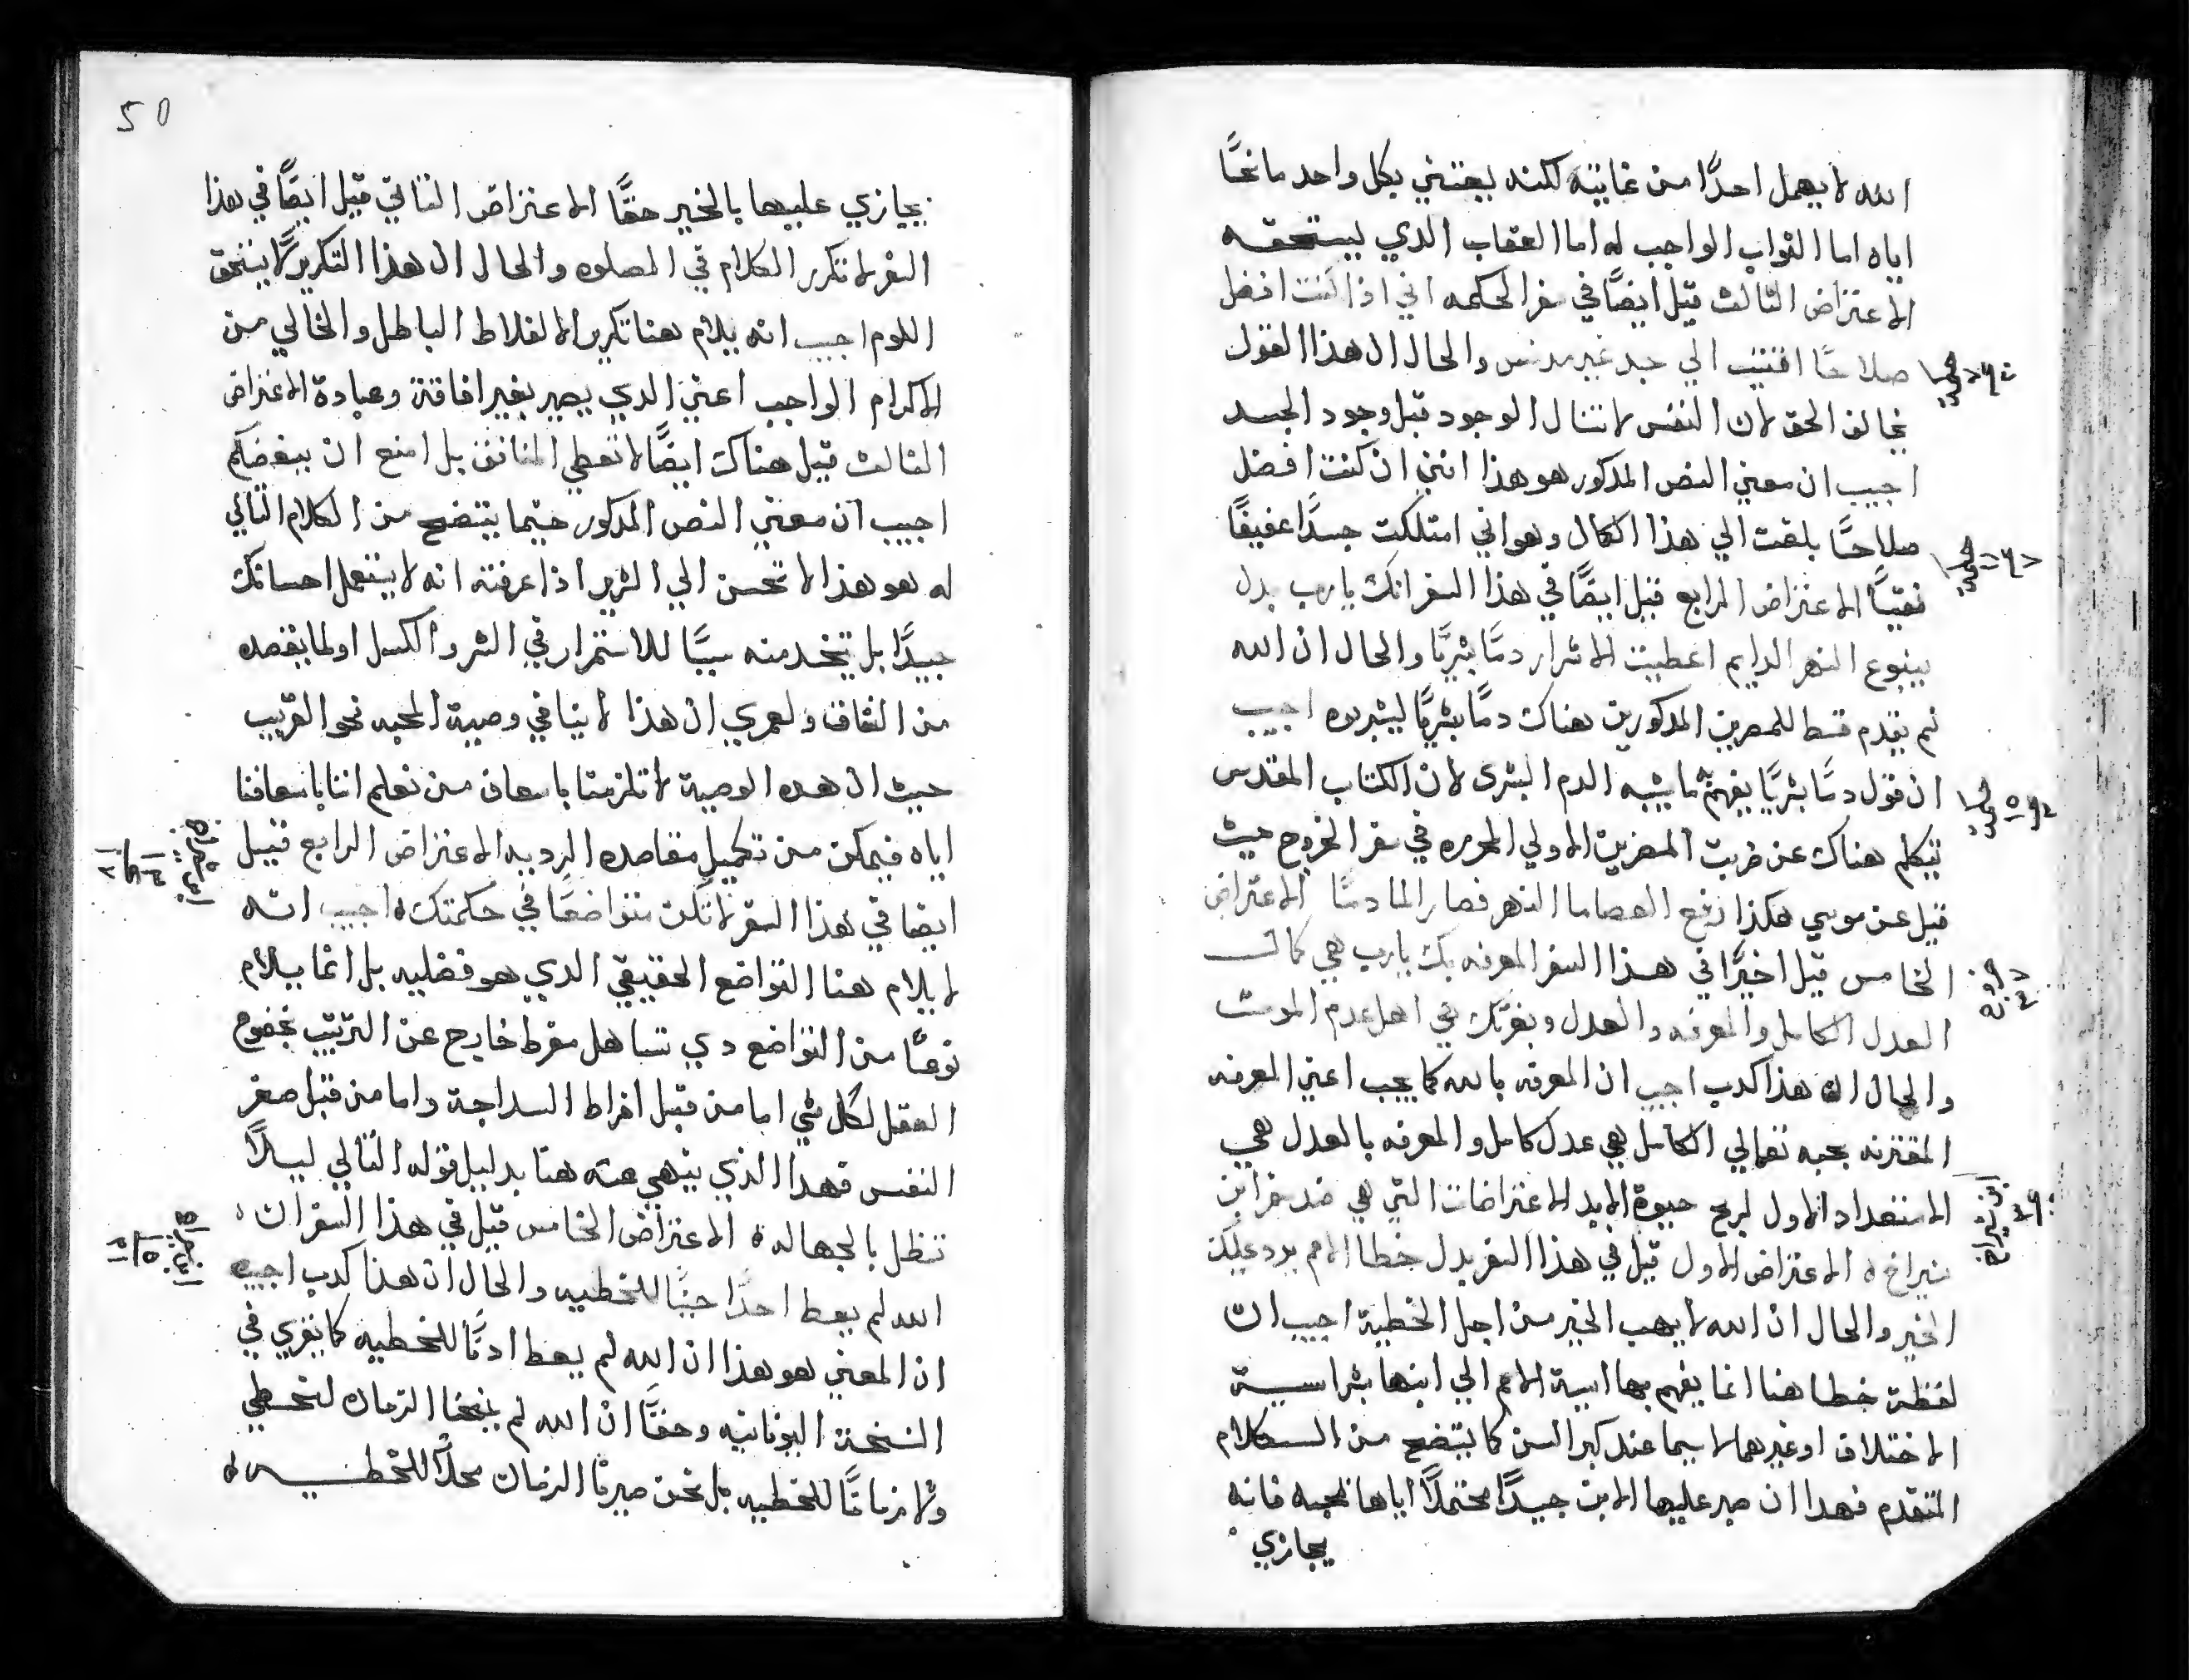 الله لا يهمل احدًا من غايته لكنه يعتني بكل واحد مانحًا
اياه اما الثواب الواجب له اما العقاب الذي يستحقه
الاعتراض الثالث قيل ايضًا في سفر الحكمه اني اذا كنت افضل
صلاحًا اقتنيت الي جسد غير مدنس والحال ان هذا القول
يخالف الحق لان النفس لا تنال الوجود قبل وجود الجسد
اجيب ان معني النص المذكور هو هذا انني ان كنت افضل
صلاحًا بلغت الي هذا الكمال وهو اني امتلكت جسدًا عفيفًا
نقيًا الاعتراض الرابع قيل ايضًا في هذا السفر انك يا رب بدل
ينبوع النهر الدايم اعطيت الاشرار دمًا بشريًا والحال ان الله
لم يقدم قط للمصريين المذكورين هناك دمًا بشريًا ليشربوه اجيب
ان قول دمًا بشريًا يفهم به ما يشبه الدم البشري لان الكتاب المقدس
يتكلم هناك عن ضربت المصريين الاولي المحرره في سفر الخروج حيث
قيل عن موسي هكذا رفع العصا ما النهر فصار الما دمًا الاعتراض
الخامس قيل اخيرًا في هذا السفر المعرفه بك يا رب هي كمال
العدل الكامل والمعرفه والعدل وبعزتك هي اصل عدم الموت
والحال ان هذا كدب اجيب ان المعرفه بالله كما يجب اعني المعرفه
المقترنه بحبه تعالي الكامل هي عدل كامل والمعرفه بالعدل هي
الاستعداد الاول لربح حيوة الابد الاعتراضات التي هي ضد سفر ابن
سيراخ ه الاعتراض الاول قيل في هذا السفر بدل خطا الام يرد عليك
الخير والحال ان الله لا يهب الخير من اجل الخطية اجيب ان
لفظة خطا هنا انما يفهم بها اسية الام الي ابنها بشراسية
الاختلاق او غيرهما لا سيما عند كبر السن كما يتضح من الكلام
المتقدم فهدا ان صبر عليها الابن جيدًا محتملًا اياها لمحبه فانه
يجازي
50
يجازي عليها بالخير حقًا الاعتراض الثاني قيل ايضًا في هذا
السفر لا تكرر الكلام في الصلوه والحال ان هذا التكرير لا يستحق
اللوم اجيب انه يلام هنا تكرير الالفلاط الباطل والخالي من
الاكرام الواجب اعني الذي يصير بغير افاقة وعبادة الاعتراض
الثالث قيل هناك ايضًا لا تعطي المنافق بل امنع ان
اجيب ان معني النص المذكور حيثما يتضح من الكلام التالي
له هو هذا لا تحسن الي الشرير اذا عرفته انه لا يستعمل احسانك
جيدًا بل يتخد منه سببًا للاستمرار في الشر والكسل او لما يقصده
من النفاق ولعمري ان هذا لا ينافي وصية المحبه نحو القريب
حيث ان هده الوصية لا تلزمنا باسعاف من نعلم اننا باسعافنا
اياه فيمكن من تكميل مقاصده الرديه الاعتراض الرابع قيل
ايضا في هذا السفر لا تكن متواضعًا في حكمتك ه اجيب انه
لا يلام هنا التواضع الحقيقي الذي هو فضليه بل انما يلام
نوعًا من التواضع دي تساهل مفرط خارج عن الترتيب بخضوع
العقل لكل شي اما من قبل افراط السداجة واما من قبل صغر
النفس فهدا الذي ينهي عنه هنا بدليل قوله التالي ليلًا
تنظل بالجهاله ه الاعتراض الخامس قيل في هذا السفر ان
الله لم يعط احدًا حينًا للخطيه والحال ان هذا كدب اجيب
ان المعني هو هذا ان الله لم يعط ادنًا للخطيه كما يقري في
النسخة اليونانيه وحقًا ان الله لم يمنحنا الزمان لنخطي
ولا زمانًا للخطيه بل نحن صيرنا الزمان محلًا للخطيه ه